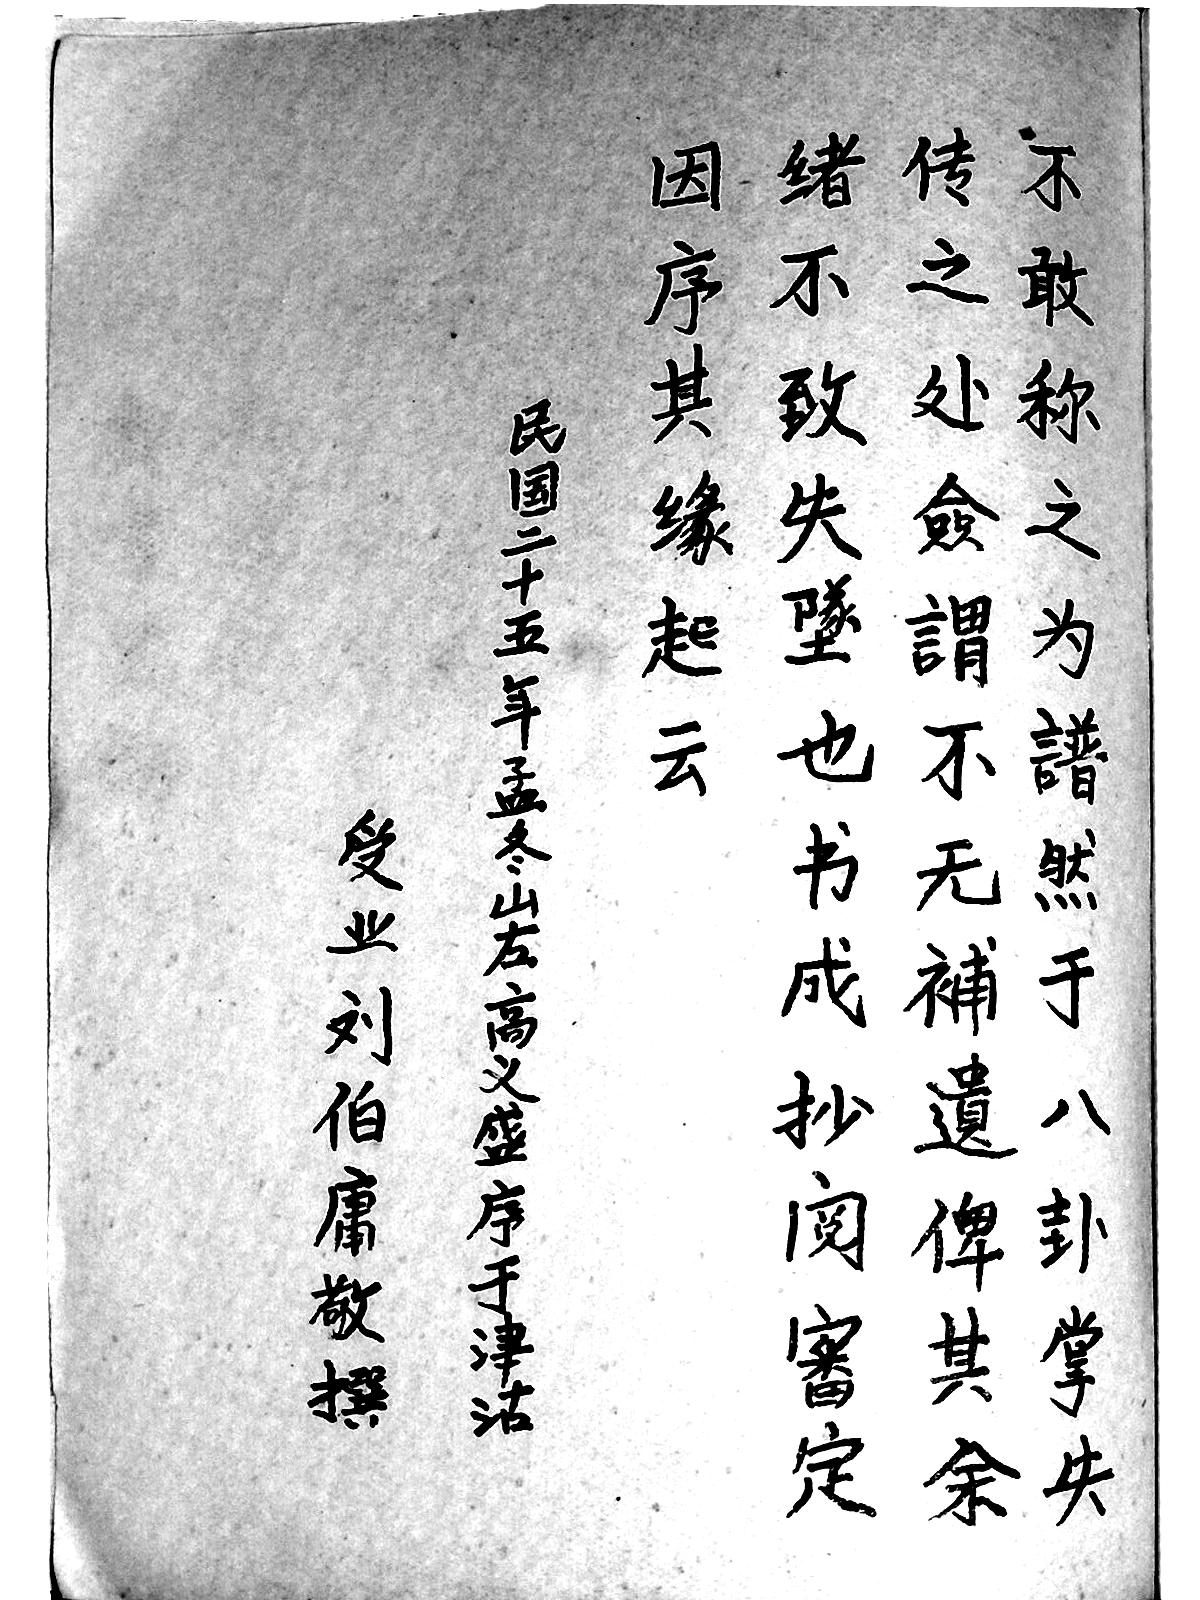 不敢称之为譜然于八卦掌失
传之处僉謂不无補遺俾其余
绪不致失墜也书成抄阅審定
因序其缘起云
民国二十五年孟冬山左高义盛序于津沽
受业刘伯庸敬撰